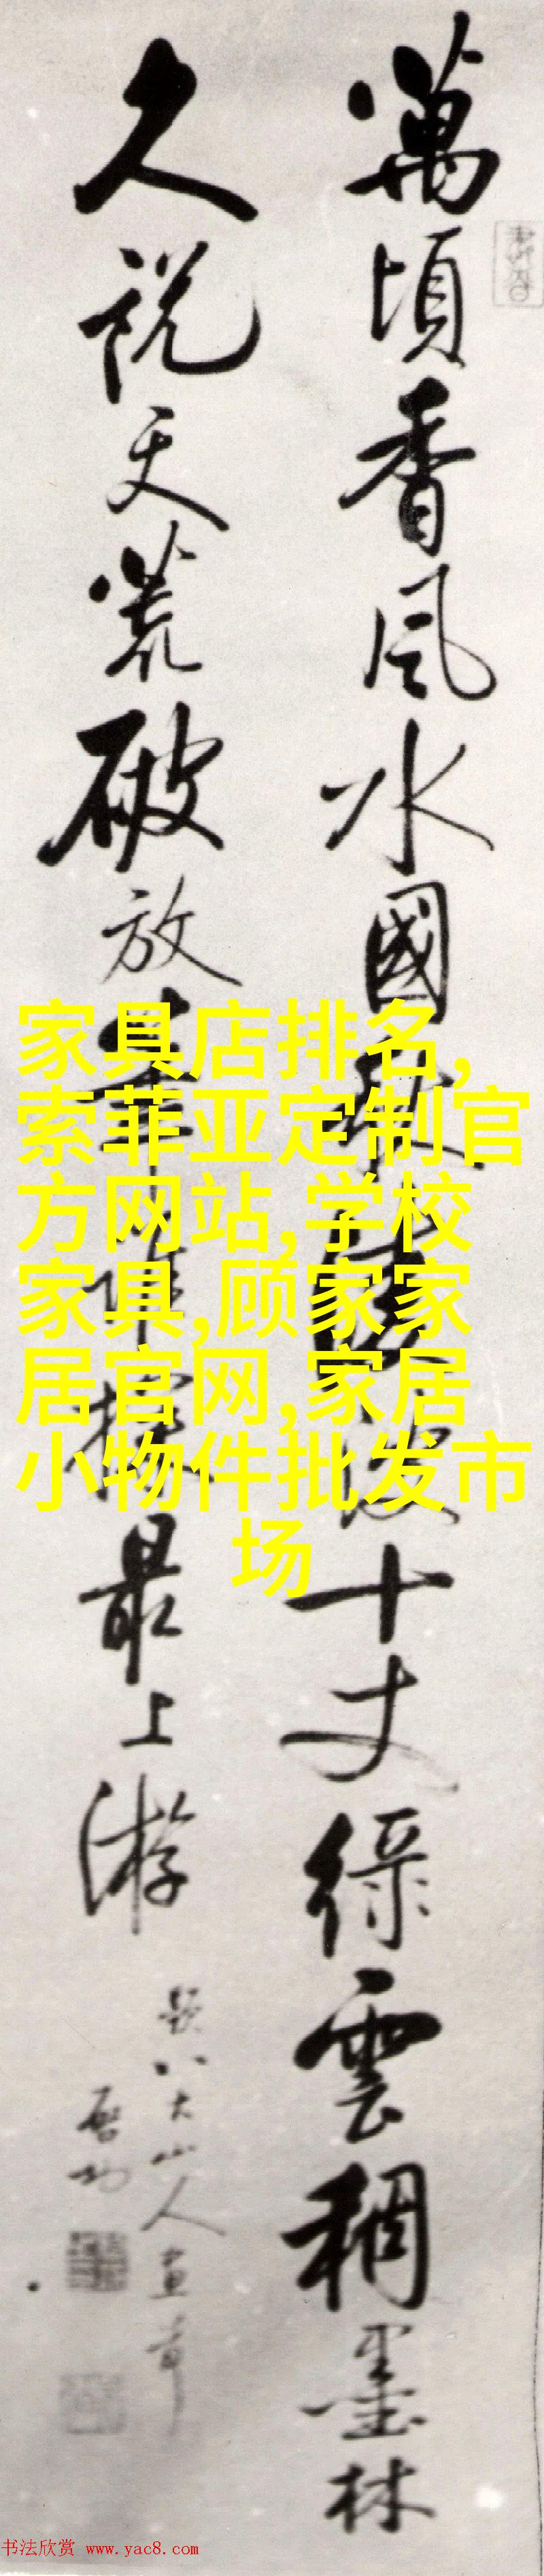 萬頃香風水國秋 淩波十丈綠雲稠 墨林
久説天荒破 放筆唯探最上游
題八大山人畫
啓功
家具店排名,
索菲亚定制官
方网站,学校
家具,顾家家
居官网,家居
小物件批发市
场
书法欣赏 www.yac8.com